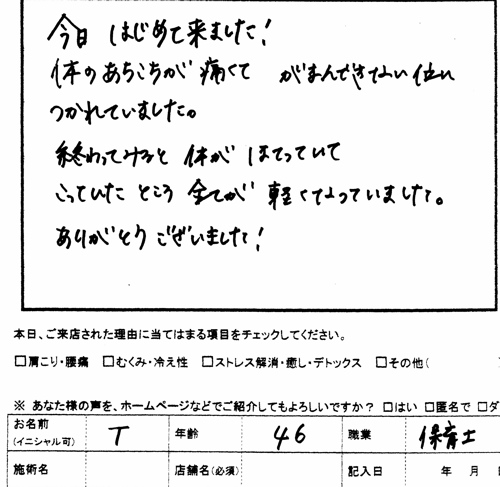 今日 はじめて来ました!
体のあちこちが 痛くて がまんできない位い
つかれていました。
終わってみると 体が ほてっていて
こっていた ところ 全てが 軽くなっていました。
ありがとう ございました!
本日、ご来店された理由に当てはまる項目をチェックしてください。
□肩こり・腰痛 □むくみ・冷え性 □ストレス解消・癒し・デトックス □その他(
※ あなた様の声を、ホームページなどでご紹介してもよろしいですか? □はい □匿名で □ダ
お名前 (イニシャル可) T 年齢 46 職業 保育士
施術名 店舗名(必須) 記入日 年 月 日